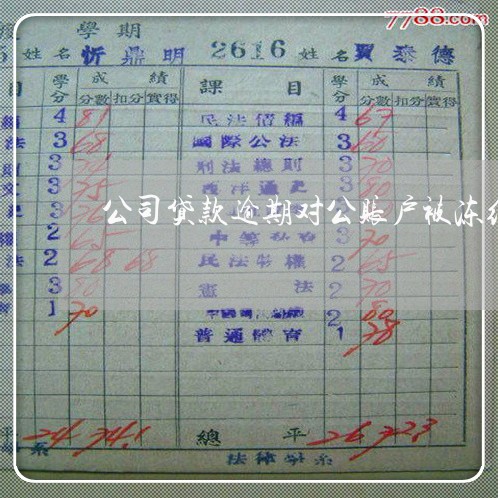 7788.com
學期
5 姓名 忻鼎明 2616 姓名 賈泰德
目 學分 成績 課目 學分 成績
分數 扣分 實得 分數 扣分 實得
4 81 民法債編 4 67
法 3 68 國際公法 3 60
3 刑法總則 3 70
3 75 西洋通史 3 80
公司贷款逾期对公账户被冻结
2 65 3 70
法 2 68 68 民法物權 2 65
3 80 憲法 2 70
1 70 2 80
普通體育 1 78
平 24 74.1 總平 26 72.3
系 法律學系